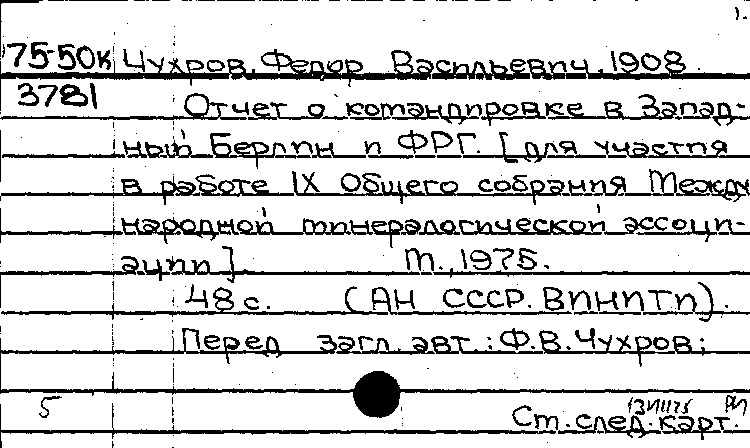 1.
75-50к Чухров, Федор Васильевич, 1908.
3781 Отчет о командировке в Запад-
ный Берлин и ФРГ. [для участия
в работе IX Общего собрания Между
народной минералогической ассоци-
ации]. М., 1975.
48 с. (АН СССР. ВИНИТИ).
Перед загл. авт.: Ф.В. Чухров;
5
См. след. карт.